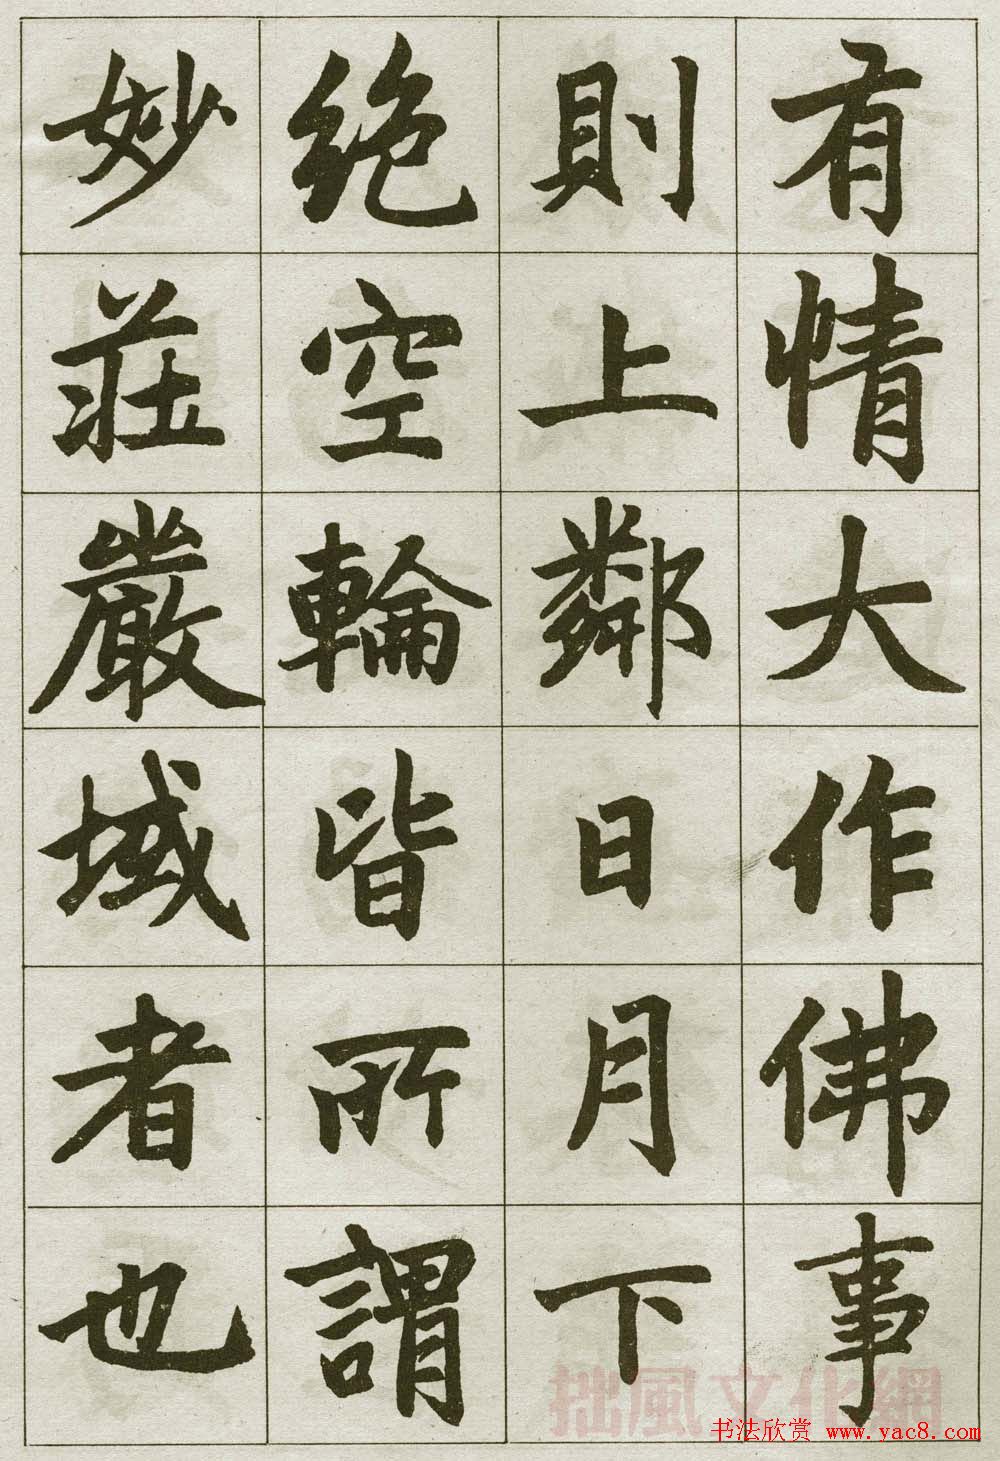 有情大作佛事
則上鄰日月下
絶空輪皆所謂
妙莊嚴域者也
拙風文化網
书法欣赏 www.yac8.com